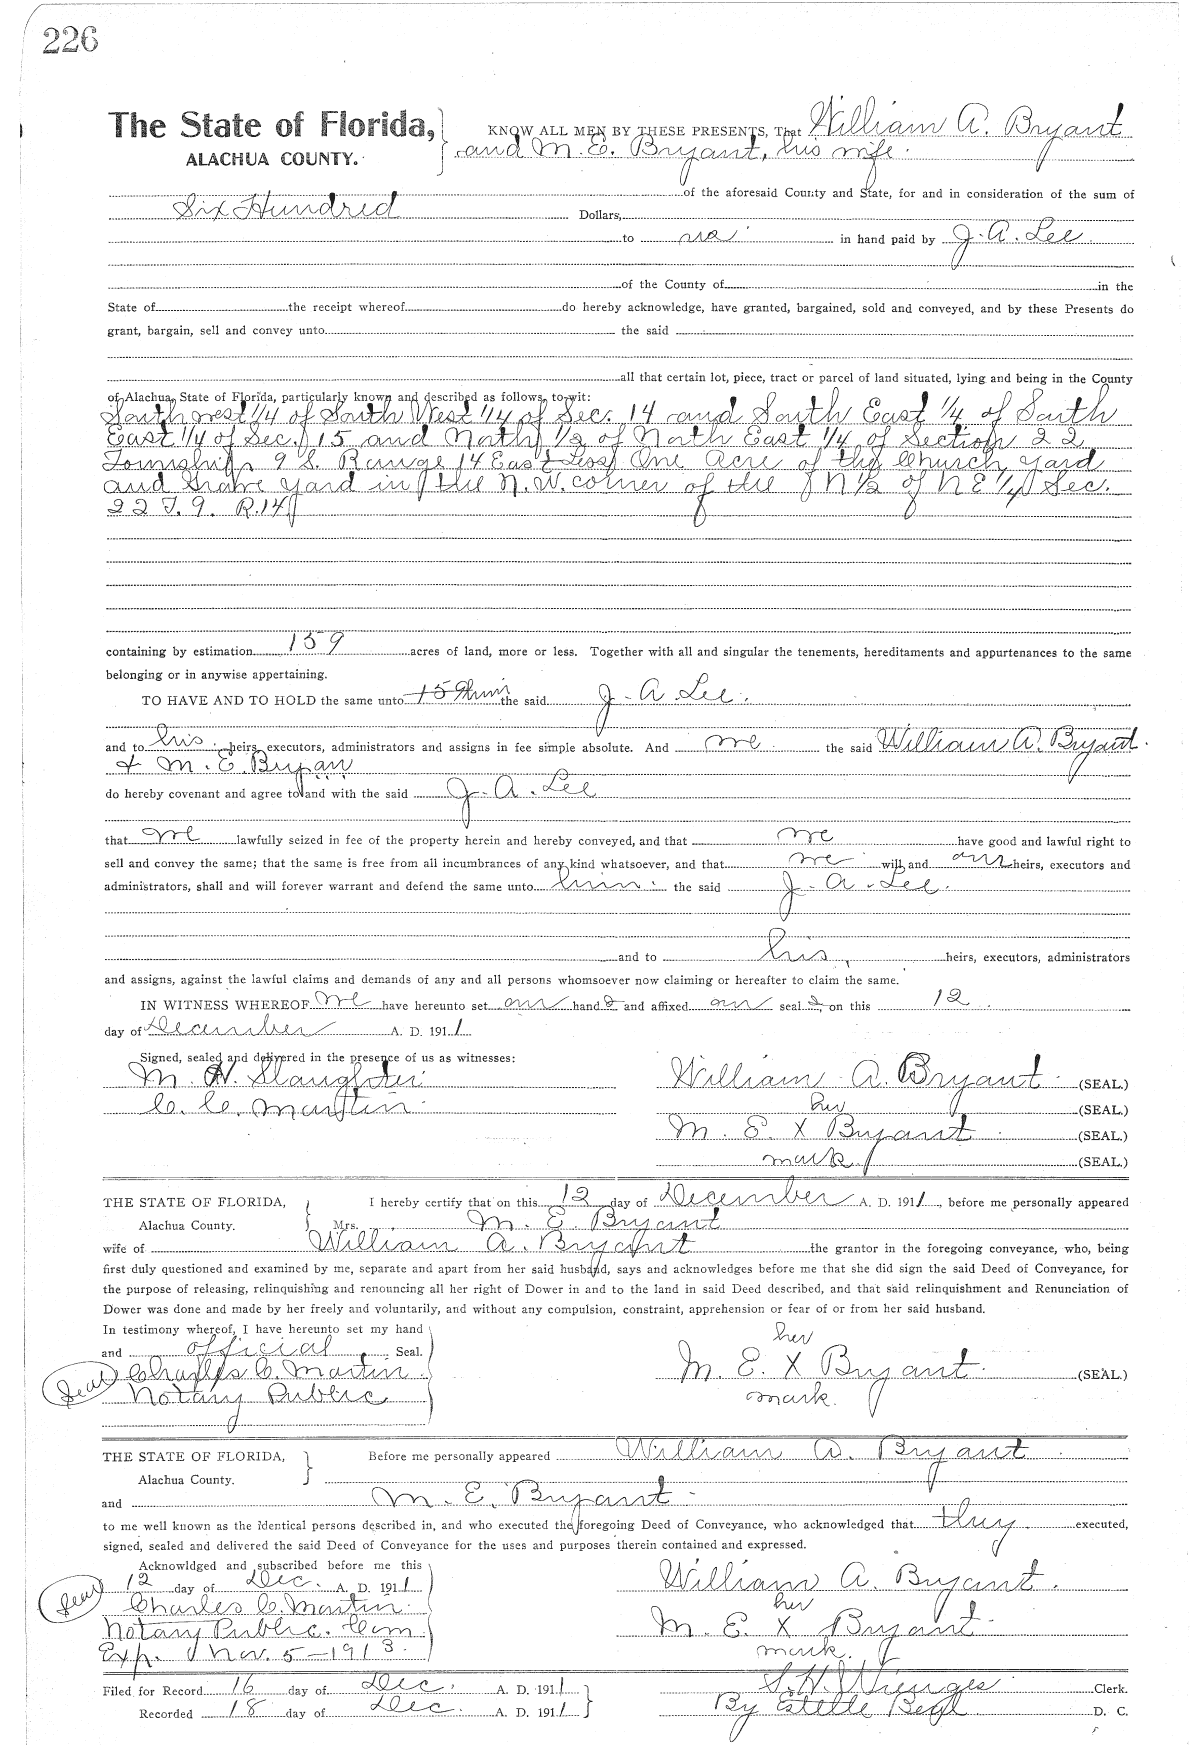 226
The State of Florida, KNOW ALL MEN BY THESE PRESENTS, That William A. Bryant
ALACHUA COUNTY. and M. E. Bryant, his wife.
of the aforesaid County and State, for and in consideration of the sum of
Six Hundred Dollars,
to us in hand paid by J. A. Lee
of the County of in the
State of the receipt whereof do hereby acknowledge, have granted, bargained, sold and conveyed, and by these Presents do
grant, bargain, sell and convey unto the said
all that certain lot, piece, tract or parcel of land situated, lying and being in the County
of Alachua, State of Florida, particularly known and described as follows, to-wit:
South west 1/4 of South West 1/4 of Sec. 14 and South East 1/4 of South
East 1/4 of Sec. 15 and North 1/2 of North East 1/4 of Section 22
Township 9 S. Range 14 East Less One Acre of the Church yard
and Grave yard in the N.W. corner of the N 1/2 of N E 1/4 Sec.
22 T. 9. R. 14
containing by estimation 159 acres of land, more or less. Together with all and singular the tenements, hereditaments and appurtenances to the same
belonging or in anywise appertaining.
TO HAVE AND TO HOLD the same unto him the said J. A. Lee.
and to his heirs, executors, administrators and assigns in fee simple absolute. And we the said William A. Bryant.
& M. E. Bryan
do hereby covenant and agree to and with the said J. A. Lee
that we lawfully seized in fee of the property herein and hereby conveyed, and that we have good and lawful right to
sell and convey the same; that the same is free from all incumbrances of any kind whatsoever, and that we will and our heirs, executors and
administrators, shall and will forever warrant and defend the same unto him. the said J. A. Lee.
and to his, heirs, executors, administrators
and assigns, against the lawful claims and demands of any and all persons whomsoever now claiming or hereafter to claim the same.
IN WITNESS WHEREOF we have hereunto set our hand s and affixed our seal s, on this 12
day of December A. D. 1911
Signed, sealed and delivered in the presence of us as witnesses:
M. N. Slaughter William A. Bryant (SEAL.)
C. C. Martin. her (SEAL.)
M. E. X Bryant (SEAL.)
mark (SEAL.)
THE STATE OF FLORIDA, I hereby certify that on this 12 day of December A. D. 1911, before me personally appeared
Alachua County. Mrs. M. E. Bryant
wife of William A. Bryant the grantor in the foregoing conveyance, who, being
first duly questioned and examined by me, separate and apart from her said husband, says and acknowledges before me that she did sign the said Deed of Conveyance, for
the purpose of releasing, relinquishing and renouncing all her right of Dower in and to the land in said Deed described, and that said relinquishment and Renunciation of
Dower was done and made by her freely and voluntarily, and without any compulsion, constraint, apprehension or fear of or from her said husband.
In testimony whereof, I have hereunto set my hand her
and official Seal.
Seal Charles C. Martin M. E. X Bryant. (SEAL.)
Notary Public mark.
THE STATE OF FLORIDA, Before me personally appeared William A. Bryant
Alachua County.
and M. E. Bryant.
to me well known as the identical persons described in, and who executed the foregoing Deed of Conveyance, who acknowledged that they executed,
signed, sealed and delivered the said Deed of Conveyance for the uses and purposes therein contained and expressed.
Acknowldged and subscribed before me this
Seal 12 day of Dec. A. D. 1911 William A. Bryant.
Charles C. Martin. her
Notary Public. Com M. E. X Bryant
Exp. Nov. 5-1913. mark.
Filed for Record 16 day of Dec. A. D. 1911 S. H. Wienges Clerk.
Recorded 18 day of Dec. A. D. 1911 By Estelle D. C.